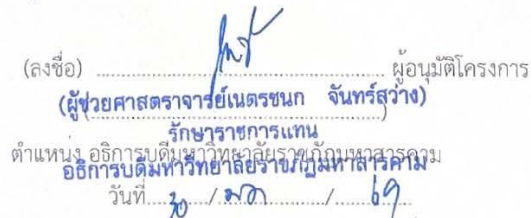 (ลงชื่อ) ........................................ ผู้อนุมัติโครงการ
(ผู้ช่วยศาสตราจารย์เนตรชนก จันทร์สว่าง)
รักษาราชการแทน
ตำแหน่ง อธิการบดีมหาวิทยาลัยราชภัฏมหาสารคาม
อธิการบดีมหาวิทยาลัยราชภัฏมหาสารคาม
วันที่ 30 / / 69